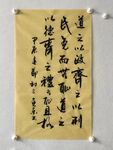 道之以政齊之以刑
民免而無恥道之
以德齊之禮有恥且格